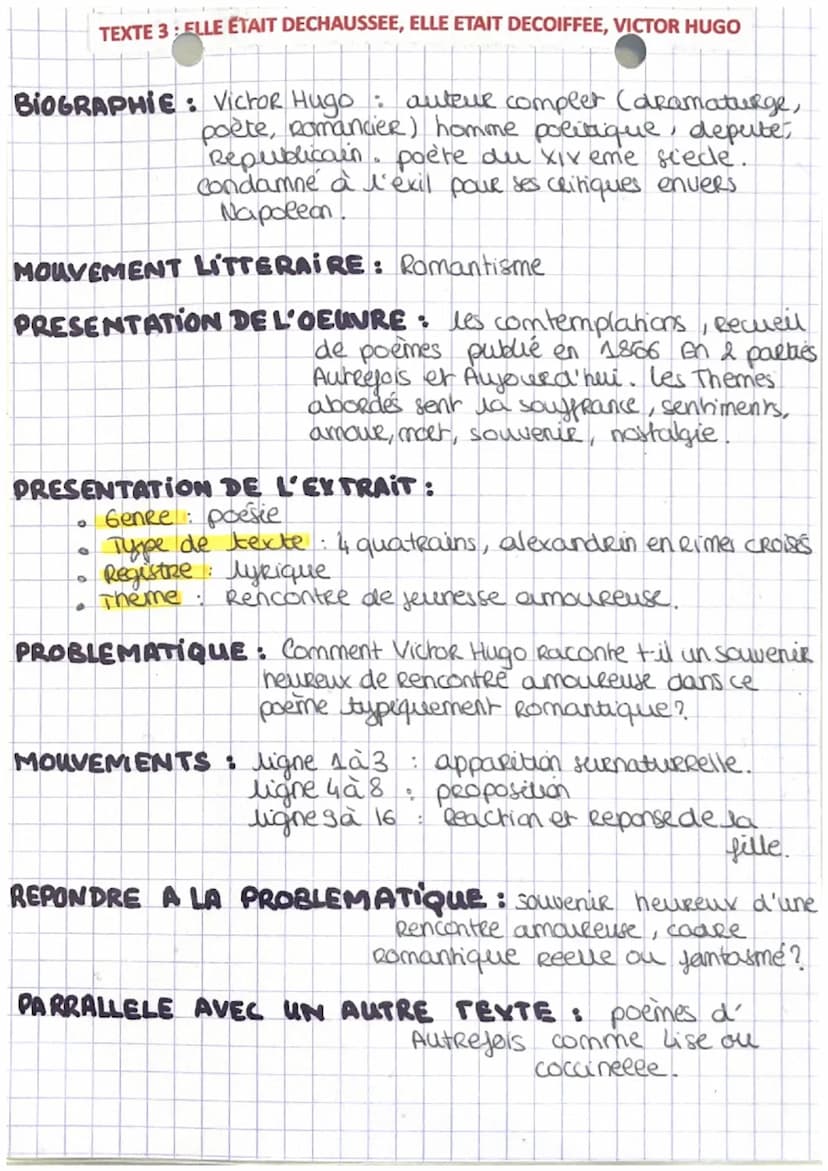 TEXTE 3 : ELLE ÉTAIT DECHAUSSEE, ELLE ETAIT DECOIFFEE, VICTOR HUGO
BIOGRAPHIE : Victor Hugo : auteur complet (dramaturge,
poète, romancier) homme politique, depute,
Republicain. poète du XIVeme siecle.
condamné à l'exil pour ses critiques envers
Napoleon.
MOUVEMENT LITTERAIRE : Romantisme
PRESENTATION DE L'OEUVRE : les comtemplations, recueil
de poèmes publié en 1856 en 2 parties
Autrefois et Aujourd'hui. Les Themes
abordés sent la souffrance, sentiments,
amour, mort, souvenir, nostalgie.
PRESENTATION DE L'EXTRAIT :
• Genre : poésie
• Type de texte : 4 quatrains, alexandrin en rimes croisés
• Registre : lyrique
• Theme : Rencontre de jeunesse amoureuse.
PROBLEMATIQUE : Comment Victor Hugo raconte t-il un souvenir
heureux de rencontre amoureuse dans ce
poème typiquement romantique?
MOUVEMENTS : ligne 1 à 3 : apparition surnaturrelle.
ligne 4 à 8 : proposition
ligne 9 à 16 : Reaction et reponse de la
fille.
REPONDRE A LA PROBLEMATIQUE : souvenir heureux d'une
rencontre amoureuse, cadre
romantique reelle ou fantasmé?
PARRALLELE AVEC UN AUTRE TEXTE : poèmes d'
Autrefois comme Lise ou
coccinelle.